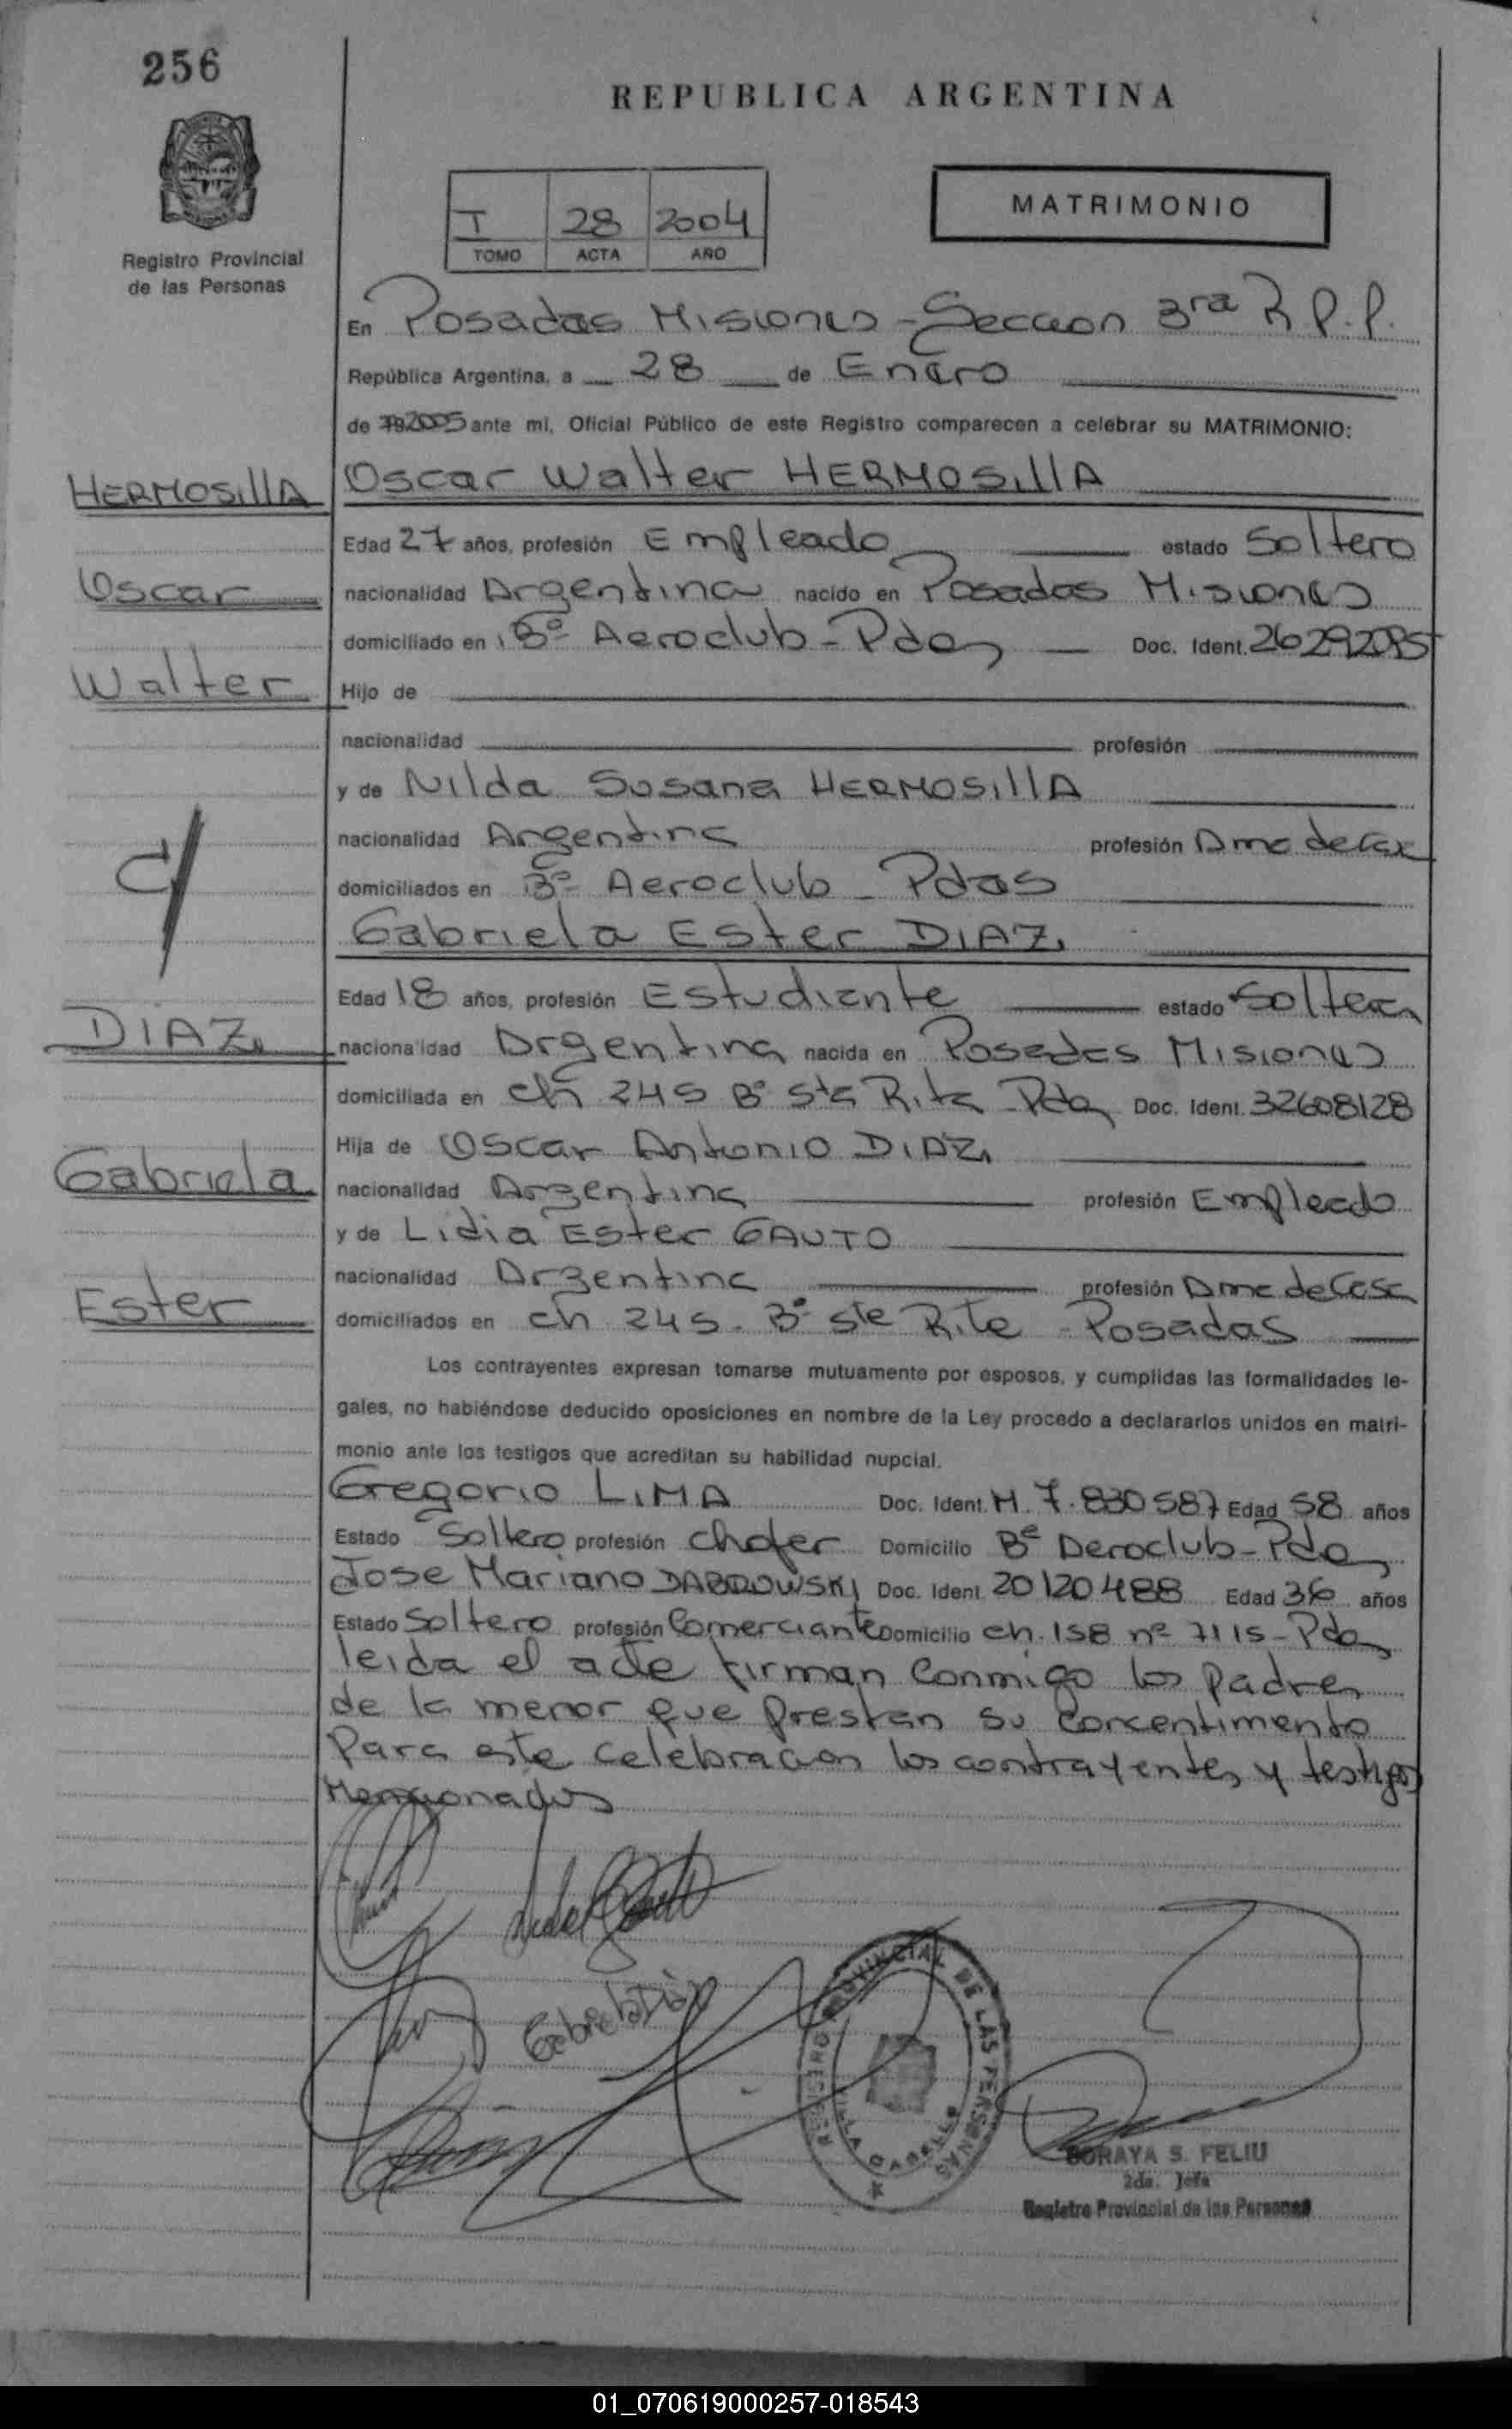 256
REPUBLICA ARGENTINA
MATRIMONIO
I 28 2004
TOMO ACTA AÑO
Registro Provincial
de las Personas
En Posadas Misiones - Seccion 3ra R.P.P.
República Argentina, a 28 de Enero
de 2005 ante mi, Oficial Público de este Registro comparecen a celebrar su MATRIMONIO:
HERMOSIllA
Oscar Walter HERMOSIllA
Edad 27 años, profesión Empleado estado Soltero
Oscar
nacionalidad Argentina nacido en Posadas Misiones
domiciliado en Bº Aeroclub - Pdas Doc. Ident. 26292085
Walter
Hijo de
nacionalidad profesión
y de Nilda Susana HERMOSIllA
nacionalidad Argentina profesión Ama de Casa
c/
domiciliados en Bº Aeroclub - Pdas
Gabriela Ester DIAZ
Edad 18 años, profesión Estudiante estado Soltera
DIAZ
nacionalidad Argentina nacida en Posadas Misiones
domiciliada en ch 245 Bº Sta Rita - Pdas Doc. Ident. 32608128
Hija de Oscar Antonio DIAZ
Gabriela
nacionalidad Argentina profesión Empleado
y de Lidia Ester GAUTO
nacionalidad Argentina profesión Ama de Casa
Ester
domiciliados en ch 245. Bº Sta Rita - Posadas
Los contrayentes expresan tomarse mutuamente por esposos, y cumplidas las formalidades le-
gales, no habiéndose deducido oposiciones en nombre de la Ley procedo a declararlos unidos en matri-
monio ante los testigos que acreditan su habilidad nupcial.
Gregorio LIMA Doc. Ident. M. 7.830587 Edad 58 años
Estado Soltero profesión chofer Domicilio Bº Aeroclub - Pdas
Jose Mariano DABROWSKI Doc. Ident. 20120488 Edad 36 años
Estado Soltero profesión Comerciante Domicilio ch. 158 nº 7115 - Pdas
leida el acta firman conmigo los padres
de la menor que prestan su concentimento
para este celebracion los contrayentes y testigos
Mencionados
Gabriela Diaz
REGISTRO PROVINCIAL DE LAS PERSONAS
VILLA CABELLO
SORAYA S. FELIU
2da. Jefa
Registro Provincial de las Personas
01_070619000257-018543